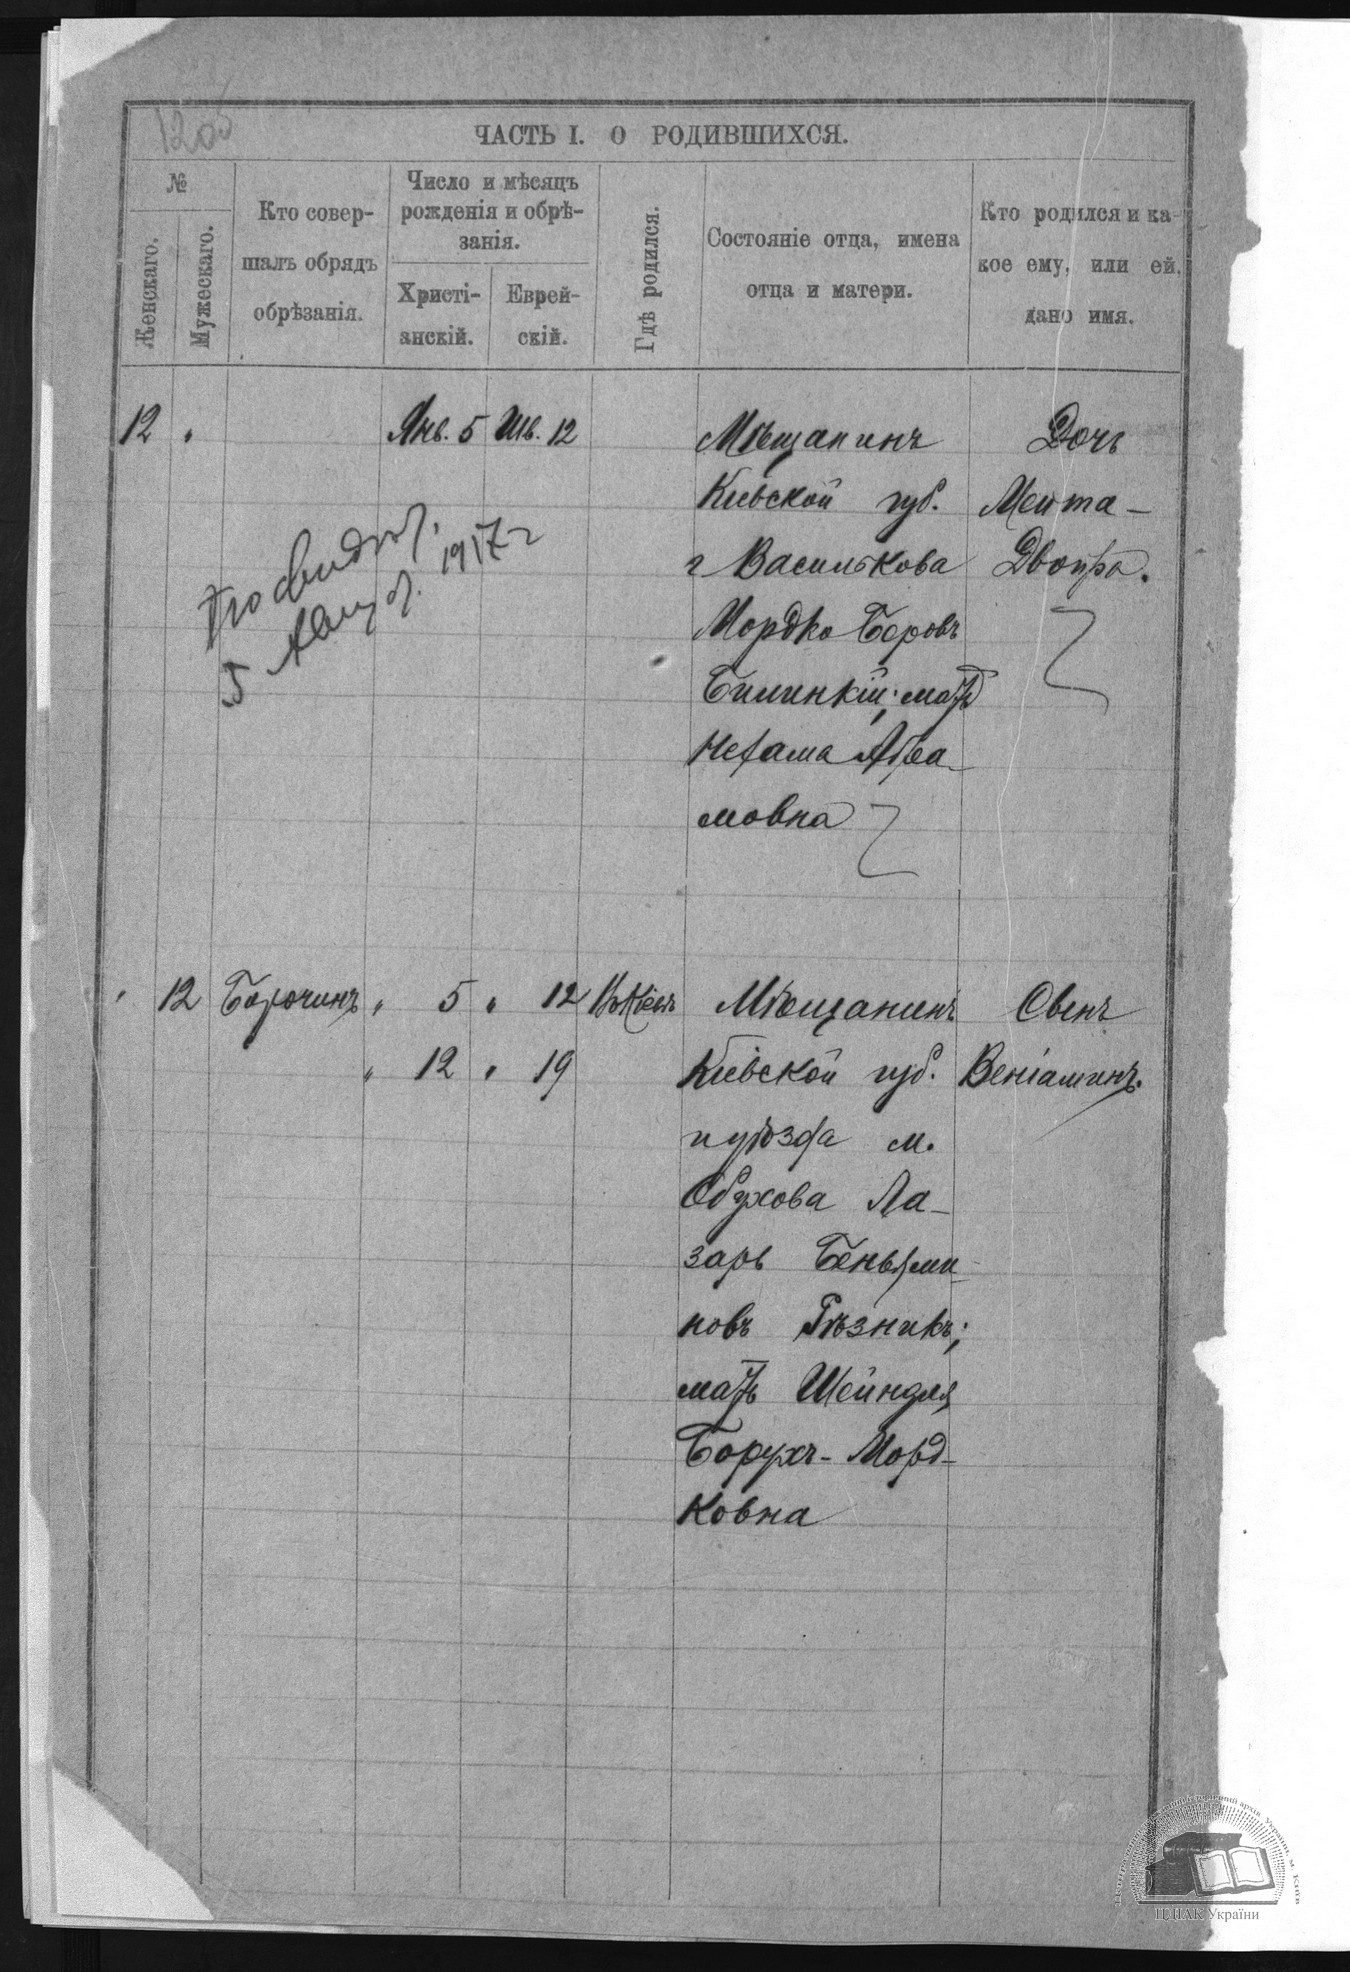 1205
ЧАСТЬ I. О РОДИВШИХСЯ.
№
Женскаго.
Мужескаго.
Кто совер-
шалъ обрядъ
обрѣзанія.
Число и мѣсяцъ
рожденія и обрѣ-
занія.
Христі-
анскій.
Еврей-
скій.
Гдѣ родился.
Состояніе отца, имена
отца и матери.
Кто родился и ка-
кое ему, или ей,
дано имя.
12 " Янв. 5 Шв. 12
Мѣщанинъ
Кіевской губ.
г Василькова
Мордко Беровъ
Билинкій; мать
Нехама Абра-
мовна
Дочь
Мента-
Двойра.
5 1917 г
" 12 " 5 " 12 Въ Кіевѣ
" 12 " 19
Мѣщанинъ
Кіевской губ.
и уѣзда м.
Обухова Ла-
зарь Беньями-
новъ Рѣзникъ;
мать Шейндля
Борухъ-Морд-
ковна
Сынъ
Веніаминъ.
ЦДІАК України